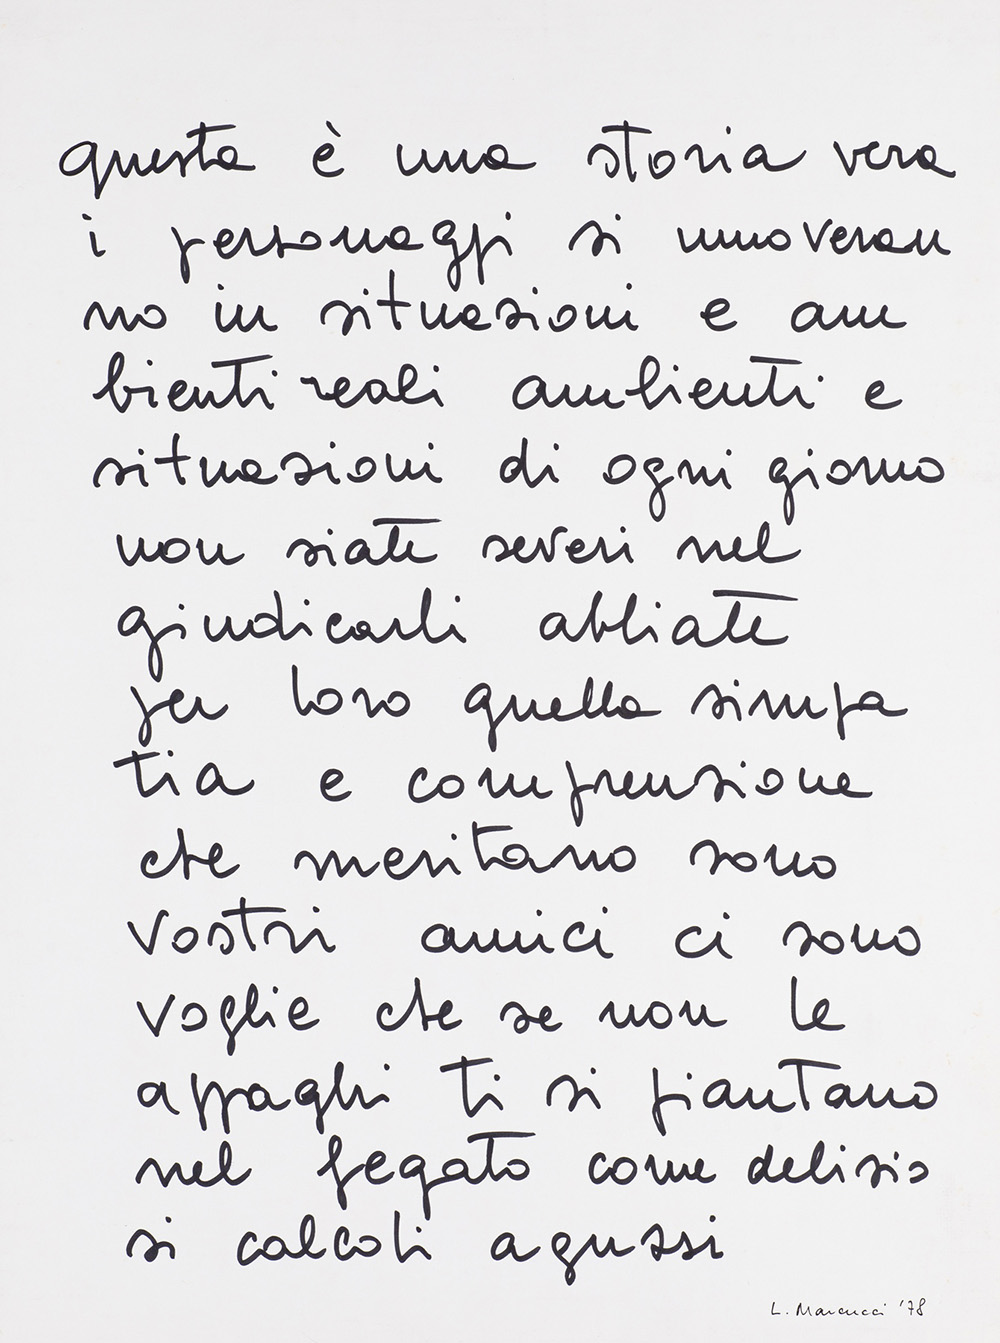 questa è una storia vera
i personaggi si muoveran
no in situazioni e am
bienti reali ambienti e
situazioni di ogni giorno
non siate severi nel
giudicarli abbiate
per loro quella simpa
tia e comprensione
che meritano sono
vostri amici ci sono
voglie che se non le
appaghi ti si piantano
nel fegato come delizio
si calcoli aguzzi
L. Marcucci '78